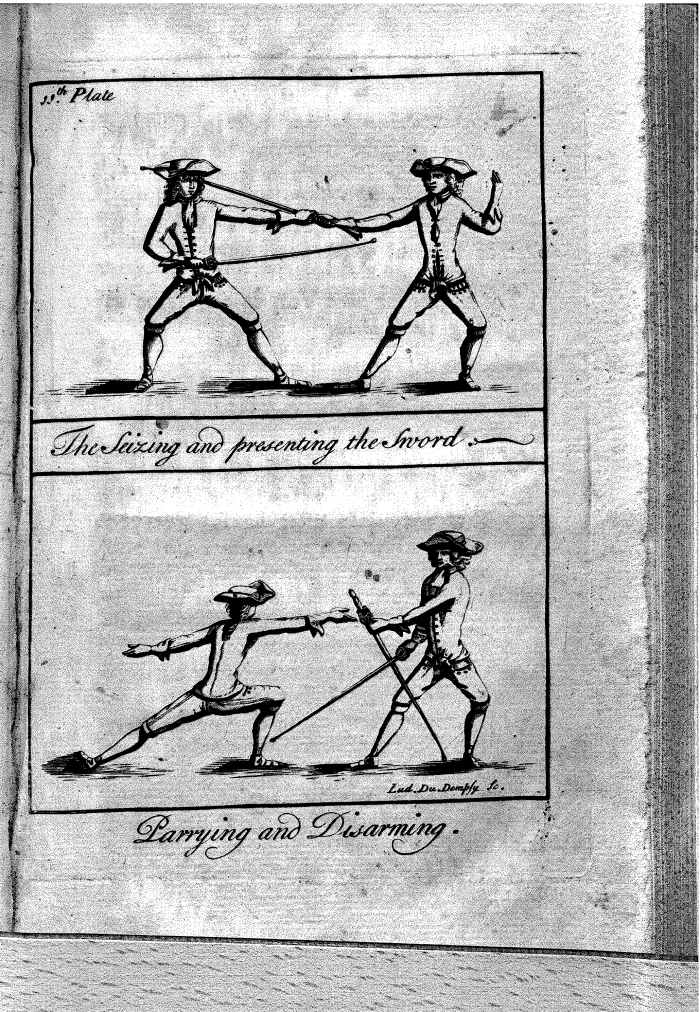 11.th Plate
The Seizing and presenting the Sword.
Lud. Du. Dempsy Sc.
Parrying and Disarming.